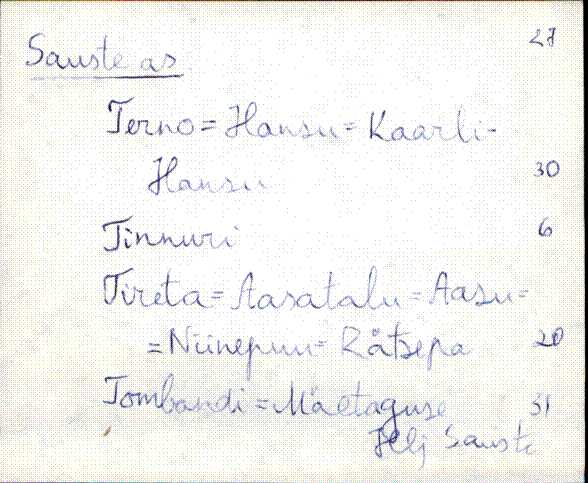 27
Sauste as.
Terno = Hansu = Kaarli-
Hansu 30
Tinnuri 6
Tireta = Aasatalu = Aasu =
= Niinepuu = Rätsepa 20
Tombandi = Mäetaguse 31
Sauste